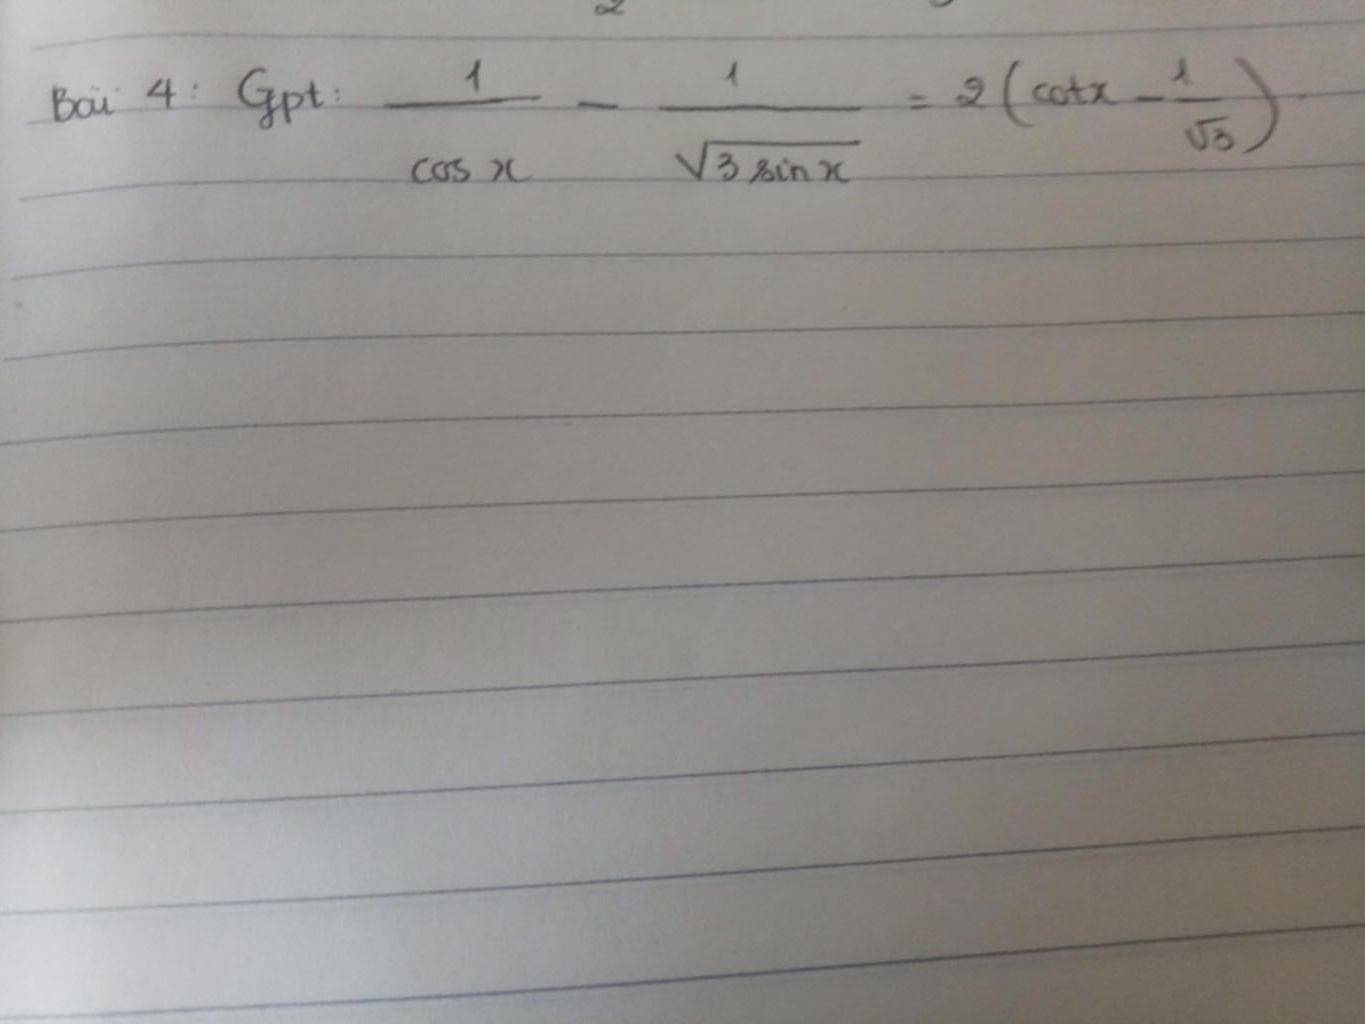 2
Bài 4: Gpt: \frac{1}{\cos x} - \frac{1}{\sqrt{3 \sin x}} = 2\left(\cot x - \frac{1}{\sqrt{3}}\right).